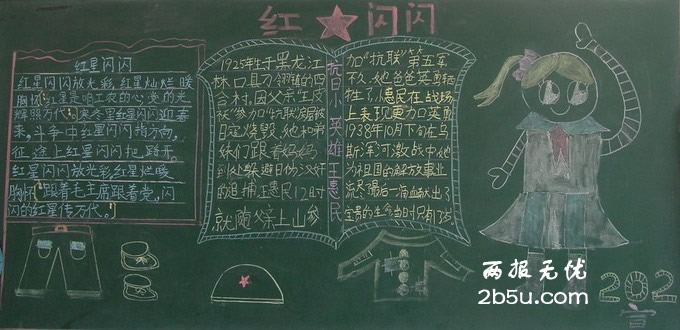 红★闪闪
红星闪闪
红星闪闪放光彩,红星灿烂暖
胸怀,红星是咱工农的心,党的光
辉照万代。寒冬里红星闪闪迎春
来,斗争中红星闪闪指方向,
征途上红星闪闪把路开。
红星闪闪放光彩,红星灿烂暖
胸怀,跟着毛主席跟着党,闪
闪的红星传万代。
抗日小英雄王惠民
1925年生于黑龙江
林口县刁翎镇的四
合村,因父亲王皮
袄"参加"抗联"房屋被
日寇烧毁,她和弟
妹们跟着妈妈
到处躲避日伪汉奸
的追捕王惠民12时
就随父亲上山参
加"抗联"第五军
不久,她爸爸英勇牺
牲了,小惠民在战场
上表现更加英勇
1938年10月下旬在乌
斯浑河激战中她
为祖国的解放事业
流尽最后一滴血献出了
宝贵的生命当时只有13岁。
两报无忧
2b5u.com
202
宣